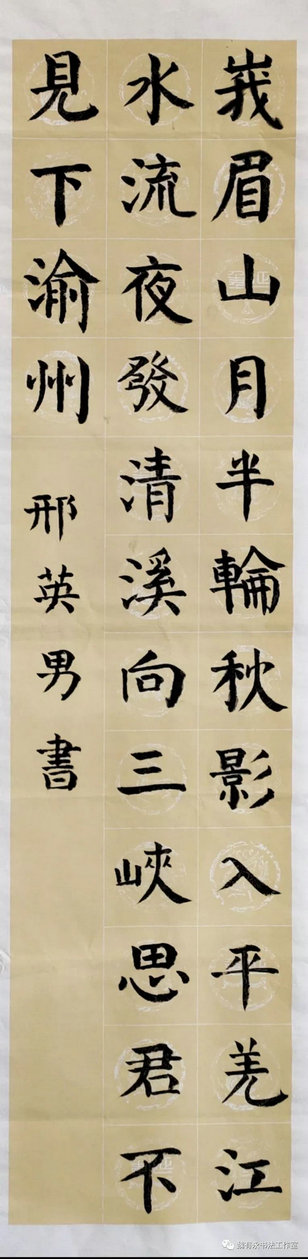 峩眉山月半輪秋影入平羌江
水流夜發清溪向三峽思君不
見下渝州
邢英男書